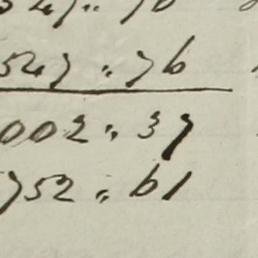 547 " 76
002 " 37
752 " 61